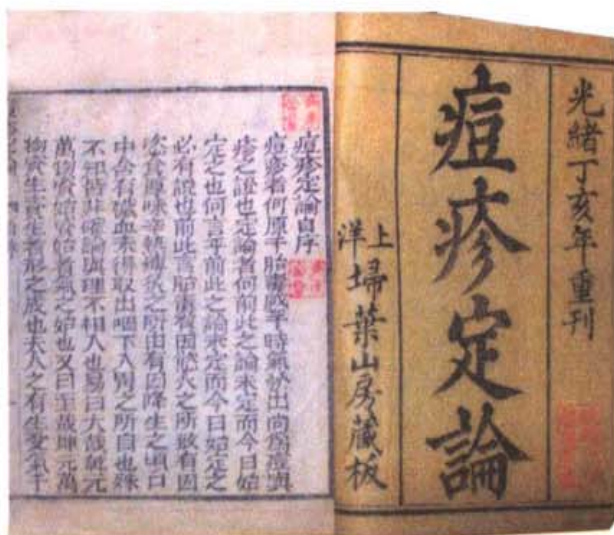 光緒丁亥年重刊
痘疹定論
上洋埽葉山房藏板
痘疹定論自序
痘疹者何原乎胎毒感乎時氣發出而為痘與
疹之證也定論者何前此之論未定而今日始
定之也何言乎前此之論未定而今日始定之
必有說也前此言胎毒有因於火之所致有因
食厚味辛熱之所由有因降生之頃口
中含有穢血未得取出咽下入胃之所自也殊
不知皆非確論與理不相人也易曰大哉乾元
萬物資始資始者氣之始也又曰至哉坤元萬
物資生資生者形之成也夫人之有生受氣于